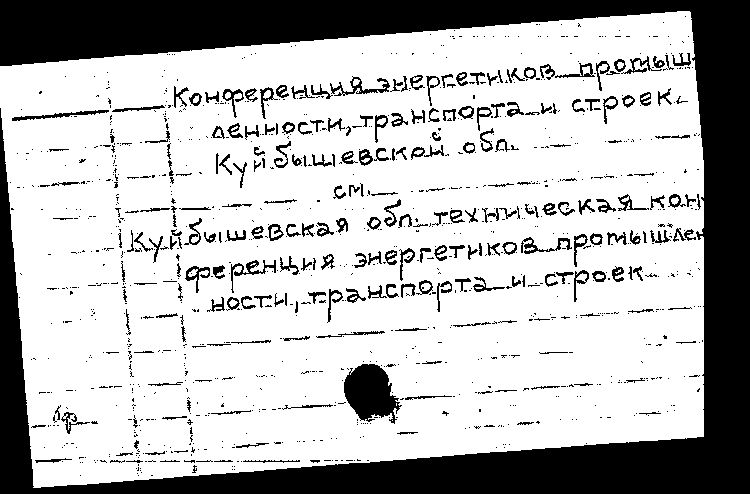 Конференция энергетиков промыш-
ленности, транспорта и строек
Куйбышевской обл.
см.
Куйбышевская обл. техническая кон-
ференция энергетиков промышлен
ности, транспорта и строек